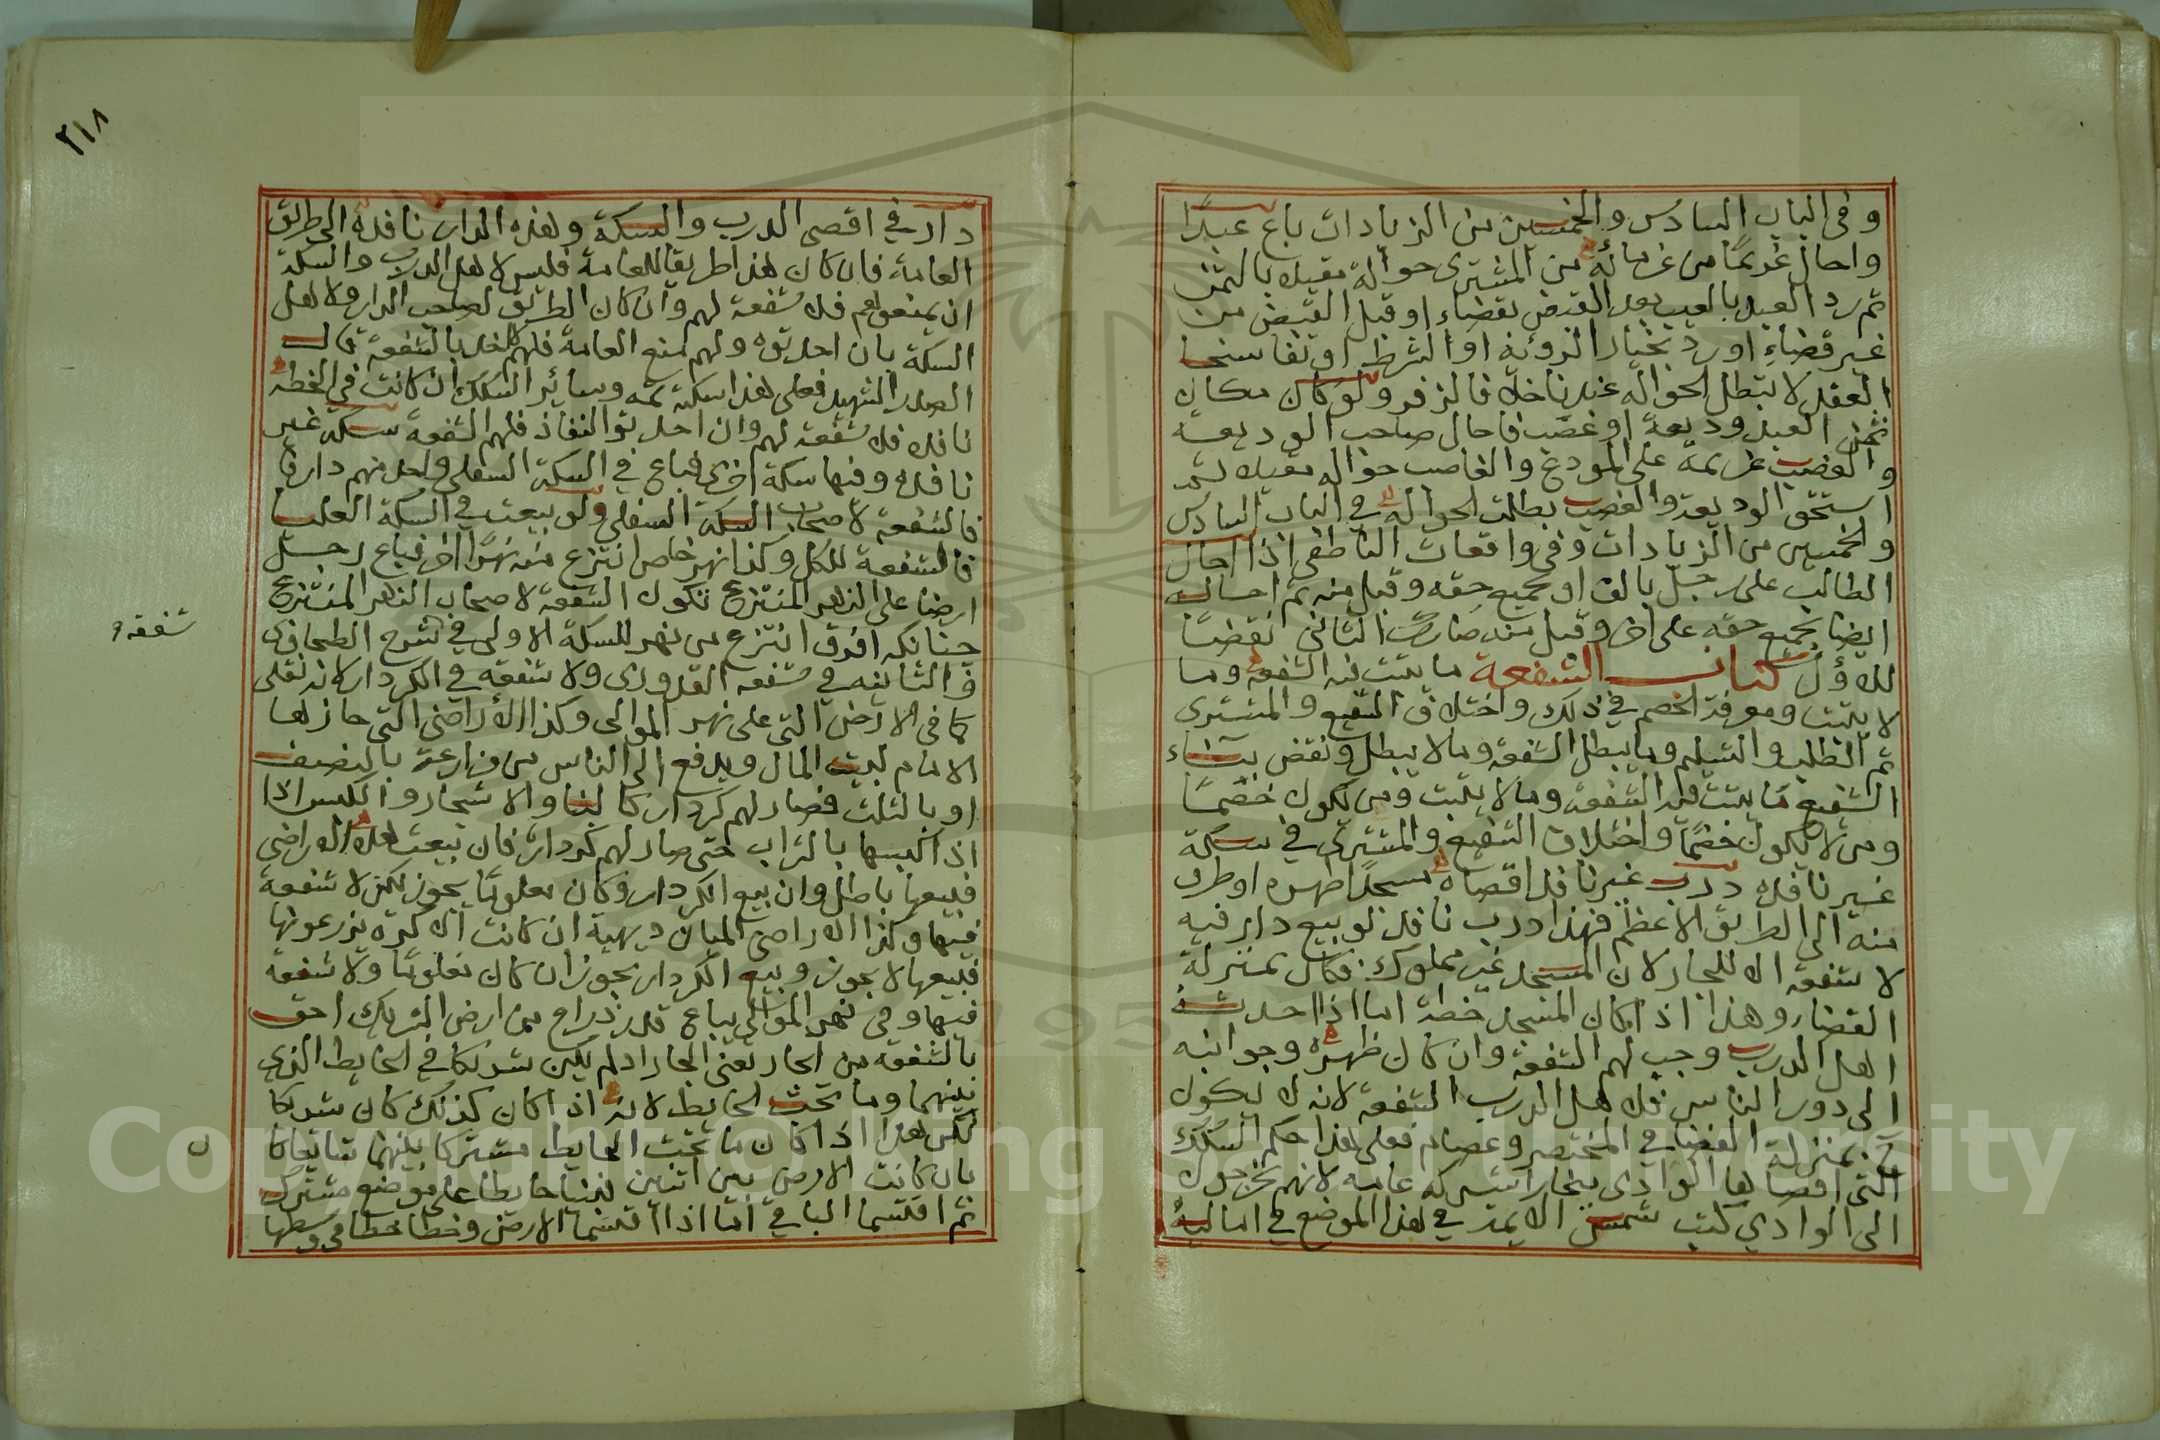 وفى الباب السادس والخمسين من الزيادات باع عبدًا
واحال غريمًا من غرمائه من المشترى حوالة مقيده بالثمن
ثم رد العبد بالعيب بعد القبض بقضاء او قبل القبض من
غير قضاءٍ او رد بخيار الرؤية او الشرط او تفاسخا
العقد لا تبطل الحواله عندنا خلافا لزفر ولو كان مكان
ثمن العبد وديعة او غصب فاحال صاحب الوديعه
والغصب غريمه على المودع والغاصب حواله مقيده ثم
استحق الوديعة والغصب بطلت الحواله في الباب السادس
والخمسين من الزيادات وفى واقعات الناطفى اذا احال
الطالب على رجل بالف او بجميع حقه وقبل منه ثم احاله
ايضا بجميع حقه على اخر وقبل منه صار الثانى نقضا
للاول كتاب الشفعة ما يثبت فيه الشفعه وما
لا يثبت ومعرفة الخصم في ذلك واختلاف الشفيع والمشترى
ثم الطلب والتسليم وما يبطل الشفعه وما لا يبطل ونقض بناء
الشفيع ما يثبت فيه الشفعة وما لا يثبت ومن يكون خصمًا
ومن لا يكون خصمًا واختلاف الشفيع والمشترى في سكة
غير نافده درب غير نافد اقصاه مسجدًا ظهره او طرف
منه الى الطريق الاعظم فهذا درب نافد لو بيع دار فيه
لا شفعه الا للجار لان المسجد غير مملوك فكان بمنزلة
الفضاء وهذا اذا كان المسجد خطة اما اذا احدثه
اهل الدرب وجب لهم الشفعة وان كان ظهره وجوانبه
الى دور الناس فلاهل الدرب الشفعة لانه لا يكون
ح بمنزلة الفضا في المختصر وعصام فعلى هذا حكم السكك
التى اقصاها الوادى ببخارا شركه عامه لانهم يخرجون
الى الوادي كتب شمس الايمة في هذا الموضع في اماليه
٢١٨
دار في اقصى الدرب والسكة وهذه الدار نافدة الى طريق
العامة فان كان هذا طريقا للعامة فليس لاهل الدرب والسكة
ان يمنعوهم فلا شفعة لهم وان كان الطريق لصاحب الدار ولاهل
السكة بان احدثوه ولهم منع العامة فلهم الاخذ بالشفعة قال
الصدر الشهيد فعلى هذا سكة ثمه وسائر السكك ان كانت في الخطه
نافده فلا شفعة لهم وان احدثوا النفاذ فلهم الشفعة سكة غير
نافده وفيها سكة اخرى فباع في السكة السفلى واحد منهم دارًا
فالشفعة لاصحاب السكة السفلى ولو بيعت في السكة العليا
فالشفعة للكل وكذا نهر خاص انتزع منه نهرًا اخر فباع رجل
ارضا على النهر المنتزع تكون الشفعة لاصحاب النهر المنتزع
جنانكه افرق انتزع من نهر السكة الاولى في شرح الطحاوى
والثانيه في شفعه القدورى ولا شفعه في الكردار لانه نقلى
كما في الارض التى على نهر الموالى وكذا الأراضى التى حازها
الامام لبيت المال ويدفع الى الناس من مزارعة بالنصف
او بالثلث فصار لهم كردار كالبنا والاشجار والكبس اذا
اذا كبسها بالتراب حتى صار لهم كردارا فان بيعت هذه الاراضى
فبيعها باطل وان بيع الكردار وكان معلومًا يجوز لكن لا شفعة
فيها وكذا الاراضى الميان ديهية ان كانت الاكرة يزرعونها
فبيعها لا يجوز وبيع الكردار يجوز ان كان معلومًا ولا شفعة
فيها وفى نهر الموالى يباع قدر ذراع من ارض الشريك احق
بالشفعه من الجار يعنى الجار اذا لم يكن شريكا في الحايط الذى
بينهما وما تحت الحايط لانه اذا كان كذلك كان شريكا
لكن هذا اذا كان ما تحت الحايط مشتركا بينهما شايعا كما
بان كانت الارض بين اثنين فبنيا حايطا على موضع مشترك
ثم اقتسما الباقي اما اذا اقتسما الارض وخطا خطا في وسطها
شفعه و
ں
Copyright © King Saud University
1957